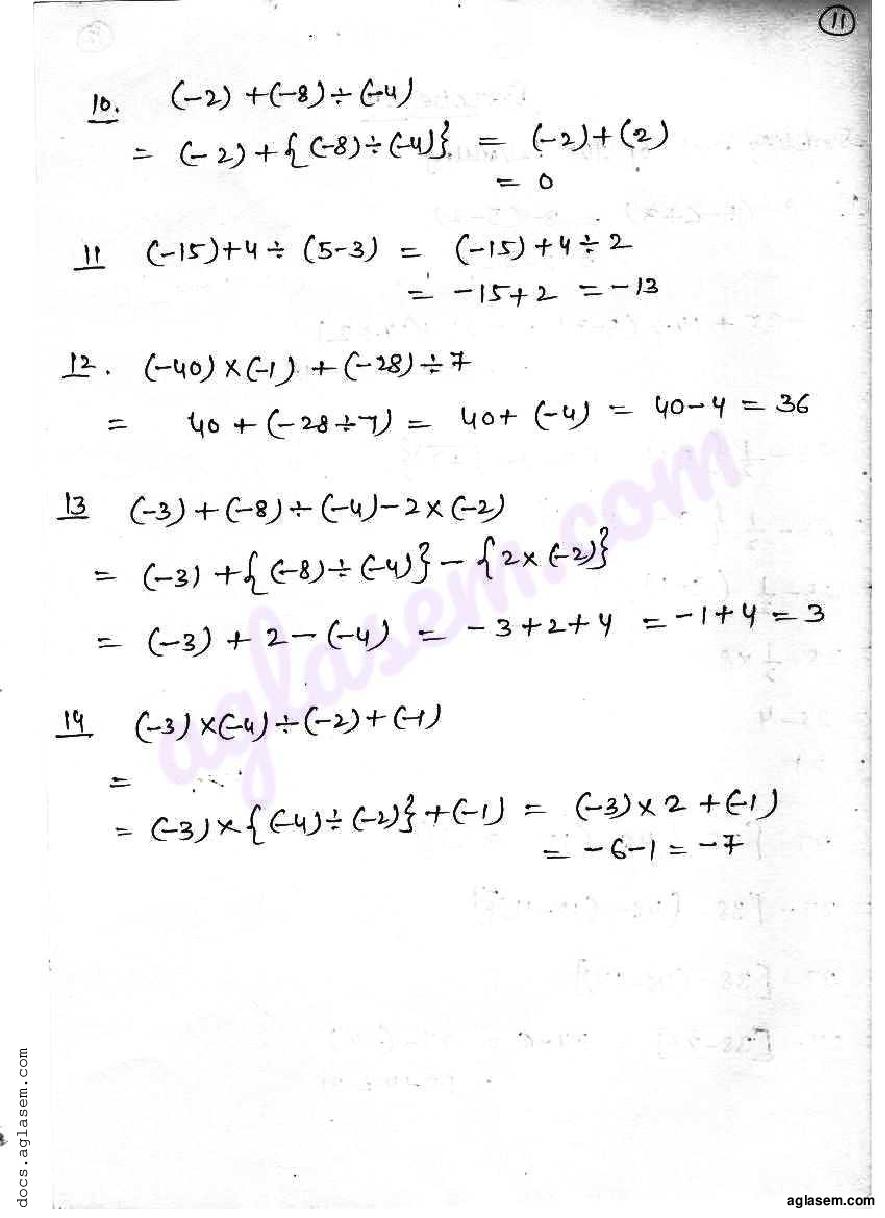 11
10. (-2) + (-8) ÷ (-4)
= (-2) + {(-8) ÷ (-4)} = (-2) + (2)
= 0
11 (-15) + 4 ÷ (5-3) = (-15) + 4 ÷ 2
= -15 + 2 = -13
12. (-40) × (-1) + (-28) ÷ 7
= 40 + (-28 ÷ 7) = 40 + (-4) = 40 - 4 = 36
13 (-3) + (-8) ÷ (-4) - 2 × (-2)
= (-3) + {(-8) ÷ (-4)} - {2 × (-2)}
= (-3) + 2 - (-4) = -3 + 2 + 4 = -1 + 4 = 3
14 (-3) × (-4) ÷ (-2) + (-1)
=
= (-3) × {(-4) ÷ (-2)} + (-1) = (-3) × 2 + (-1)
= -6 - 1 = -7
aglasem.com
docs.aglasem.com
aglasem.com